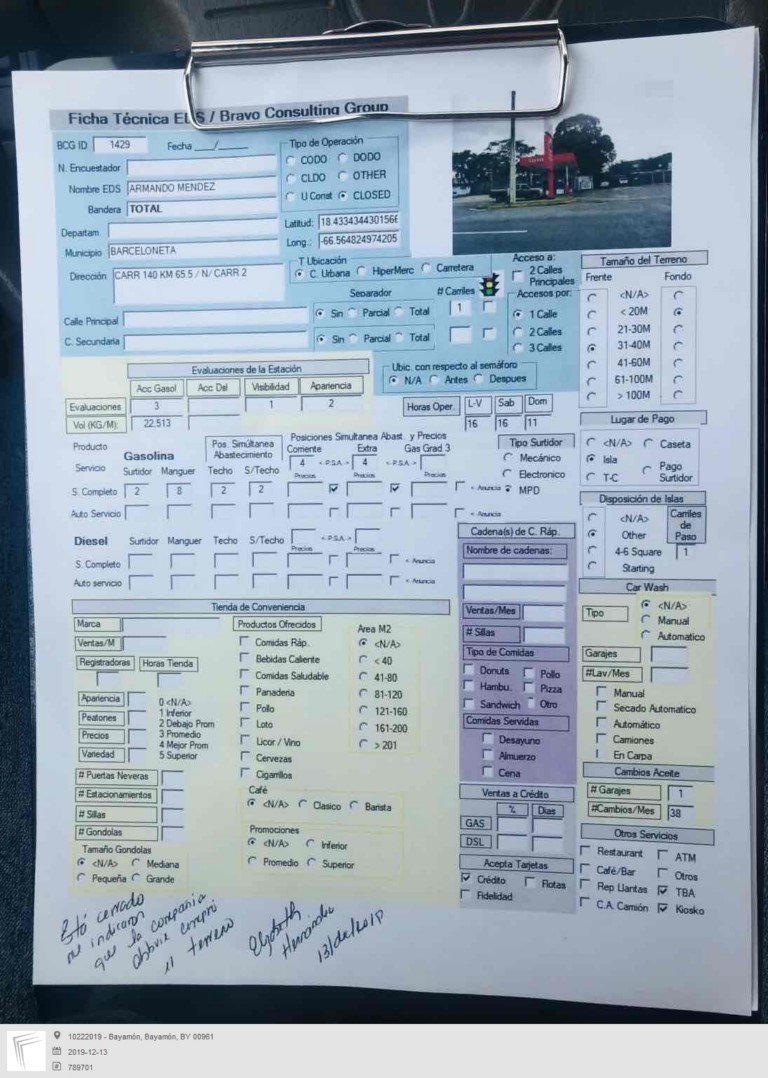 Ficha Técnica EDS / Bravo Consulting Group
BCG ID 1429 Fecha ___/___
N. Encuestador
Nombre EDS ARMANDO MENDEZ
Bandera TOTAL
Departam.
Municipio BARCELONETA
Dirección CARR 140 KM 65.5 / N/ CARR 2
Calle Principal
C. Secundaria
Tipo de Operación
CODO DODO
CLDO OTHER
U Const CLOSED
Latitud: 18.4334344301566
Long.: -66.564824974205
T Ubicación
C. Urbana HiperMerc Carretera
Separador # Carriles
Sin Parcial Total 1
Sin Parcial Total
Acceso a:
2 Calles Principales
Accesos por:
1 Calle
2 Calles
3 Calles
Tamaño del Terreno
Frente Fondo
<N/A>
< 20M
21-30M
31-40M
41-60M
61-100M
> 100M
Evaluaciones de la Estación
Acc Gasol Acc Dsl Visibilidad Apariencia
Evaluaciones 3 1 2
Vol (KG/M): 22.513
Ubic. con respecto al semáforo
N/A Antes Despues
Horas Oper. L-V Sab Dom
16 16 11
Lugar de Pago
<N/A> Caseta
Isla
T-C Pago Surtidor
Producto Gasolina Pos. Simultanea Abastecimiento Posiciones Simultanea Abast. y Precios
Corriente Extra Gas Grad 3
4 <-P.S.A.-> 4 <-P.S.A.->
Servicio Surtidor Manguer Techo S/Techo Precios Precios Precios
S. Completo 2 8 2 2 < Anuncia
Auto Servicio < Anuncia
Tipo Surtidor
Mecánico
Electronico
MPD
Diesel Surtidor Manguer Techo S/Techo <-P.S.A.->
Precios Precios
S. Completo < Anuncia
Auto servicio < Anuncia
Disposición de Islas
<N/A>
Other
4-6 Square
Starting
Carriles de Paso
1
Cadena(s) de C. Ráp.
Nombre de cadenas:
Ventas/Mes
# Sillas
Tipo de Comidas
Donuts Pollo
Hambu. Pizza
Sandwich Otro
Comidas Servidas
Desayuno
Almuerzo
Cena
Ventas a Crédito
% Dias
GAS
DSL
Acepta Tarjetas
Crédito Flotas
Fidelidad
Car Wash
Tipo <N/A>
Manual
Automatico
Garajes
#Lav/Mes
Manual
Secado Automatico
Automático
Camiones
En Carpa
Cambios Aceite
# Garajes 1
#Cambios/Mes 38
Otros Servicios
Restaurant ATM
Café/Bar Otros
Rep Llantas TBA
C.A. Camión Kiosko
Tienda de Conveniencia
Marca
Ventas/M
Registradoras Horas Tienda
Apariencia
Peatones
Precios
Variedad
0 <N/A>
1 Inferior
2 Debajo Prom
3 Promedio
4 Mejor Prom
5 Superior
# Puertas Neveras
# Estacionamientos
# Sillas
# Gondolas
Tamaño Gondolas
<N/A> Mediana
Pequeña Grande
Productos Ofrecidos
Comidas Ráp.
Bebidas Caliente
Comidas Saludable
Panaderia
Pollo
Loto
Licor / Vino
Cervezas
Cigarrillos
Area M2
<N/A>
< 40
41-80
81-120
121-160
161-200
> 201
Café
<N/A> Clasico Barista
Promociones
<N/A> Inferior
Promedio Superior
Está cerrado
me indicaron
que la compania
compró
el terreno
Elizabeth
Hernández
10222019 - Bayamón, Bayamón, BY 00961
2019-12-13
789701